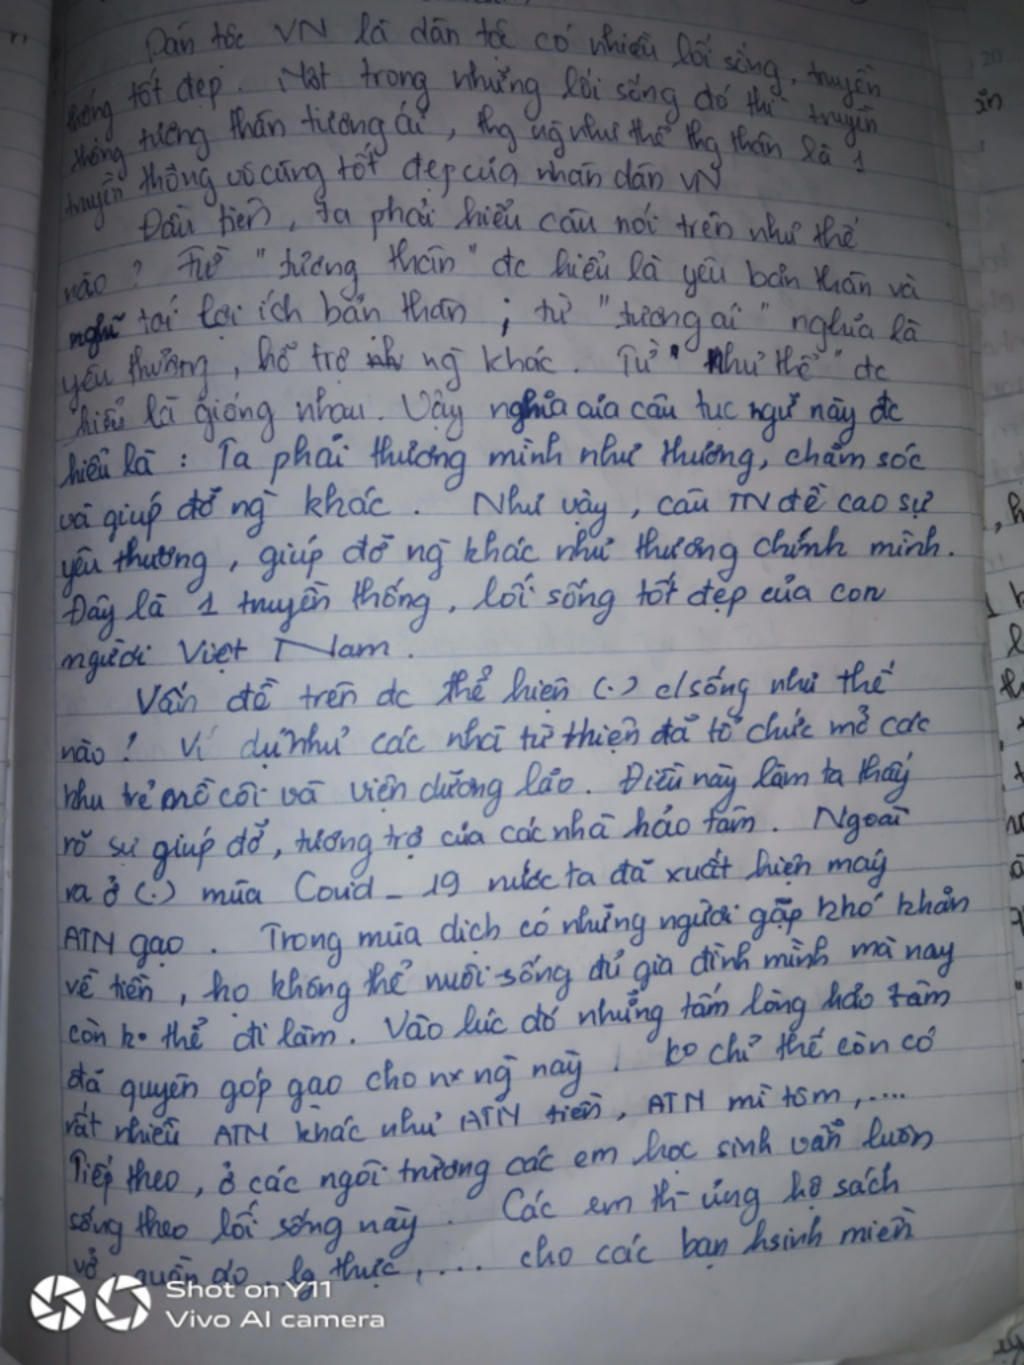 Dân tộc VN là dân tộc có nhiều lối sống, truyền
thống tốt đẹp. Một trong những lối sống đó thì truyền
thống tương thân tương ái, thg ng như thể thg thân là 1
truyền thống vô cùng tốt đẹp của nhân dân VN
Đầu tiên, ta phải hiểu câu nói trên như thế
nào? Từ "tương thân" đc hiểu là yêu bản thân và
nghĩ tới lợi ích bản thân; từ "tương ái" nghĩa là
yêu thương, hỗ trợ ng khác. Từ "như thể" đc
hiểu là giống nhau. Vậy nghĩa của câu tục ngữ này đc
hiểu là: Ta phải thương mình như thương, chăm sóc
và giúp đỡ ng khác. Như vậy, câu TN đề cao sự
yêu thương, giúp đỡ ng khác như thương chính mình.
Đây là 1 truyền thống, lối sống tốt đẹp của con
người Việt Nam.
Vấn đề trên đc thể hiện (.) c/sống như thế
nào? Ví dụ như các nhà từ thiện đã tổ chức mở các
khu trẻ mồ côi và viện dưỡng lão. Điều này làm ta thấy
rõ sự giúp đỡ, tương trợ của các nhà hảo tâm. Ngoài
ra ở (.) mùa Covid - 19 nước ta đã xuất hiện máy
ATN gạo. Trong mùa dịch có những người gặp khó khăn
về tiền, họ không thể nuôi sống đủ gia đình mình mà nay
còn ko thể đi làm. Vào lúc đó những tấm lòng hảo tâm
đã quyên góp gạo cho nx ng này. Ko chỉ thế còn có
rất nhiều ATN khác như ATN tiền, ATN mì tôm,....
Tiếp theo, ở các ngôi trường các em học sinh vẫn luôn
sống theo lối sống này. Các em th- ủng hộ sách
vở, quần áo, lg thực,... cho các bạn hsinh miền
Shot on Y11
Vivo AI camera